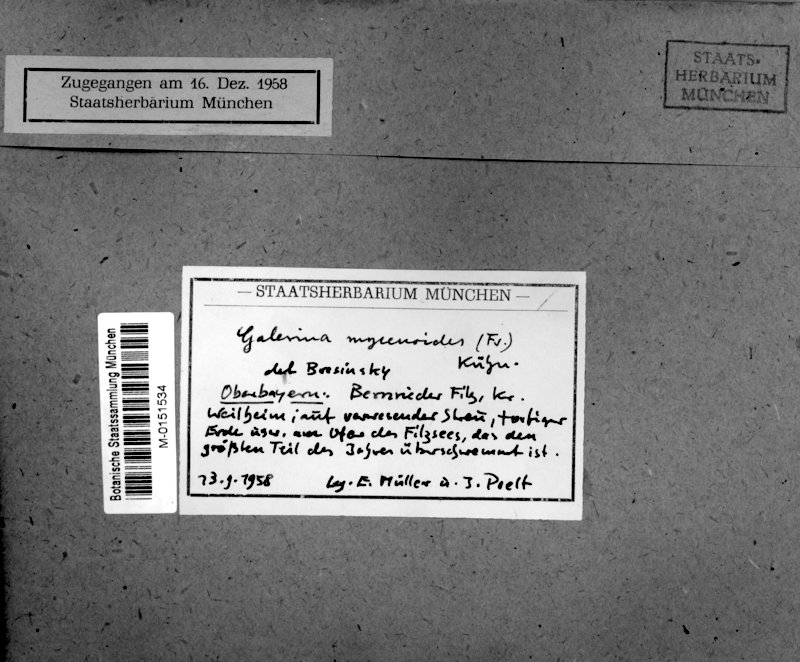 Zugegangen am 16. Dez. 1958
Staatsherbarium München
STAATS-
HERBARIUM
MÜNCHEN
— STAATSHERBARIUM MÜNCHEN —
Galerina mycenoides (Fr.)
Kühn.
det Bresinsky
Oberbayern: Bernrieder Filz, Kr.
Weilheim; auf verwesender Streu, torfiger
Erde usw. am Ufer des Filzsees, das den
größten Teil des Jahres überschwemmt ist.
13.9.1958 leg. E. Müller u. J. Poelt
Botanische Staatssammlung München
M-0151534